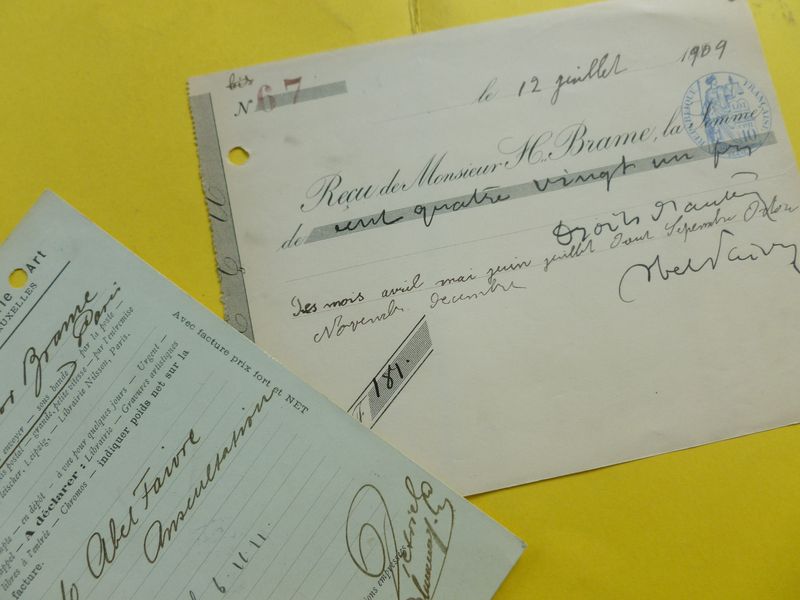 bis
No 67
le 12 juillet 1909
Reçu de Monsieur H. Brame, la Somme
de cent quatre vingt un frs
Droits d'auteur
Les mois avril mai juin juillet Aout Sepembre Octobre
Novembre decembre
Abel Faivre
181.
RÉPUBLIQUE FRANÇAISE
10
le Art
BRUXELLES
Brame
Paris
envoyer — sous bande — par la poste
postal — grande, petite vitesse — par l'entremise
Leipzig. — Librairie Nilsson, Paris.
en dépôt — à vue pour quelques jours — Urgent —
A déclarer : Librairie — Gravures artistiques
libres à l'entrée — Chromos — indiquer poids net sur la
facture.
Avec facture prix fort et NET
Abel Faivre
Auscultation
6.11.11